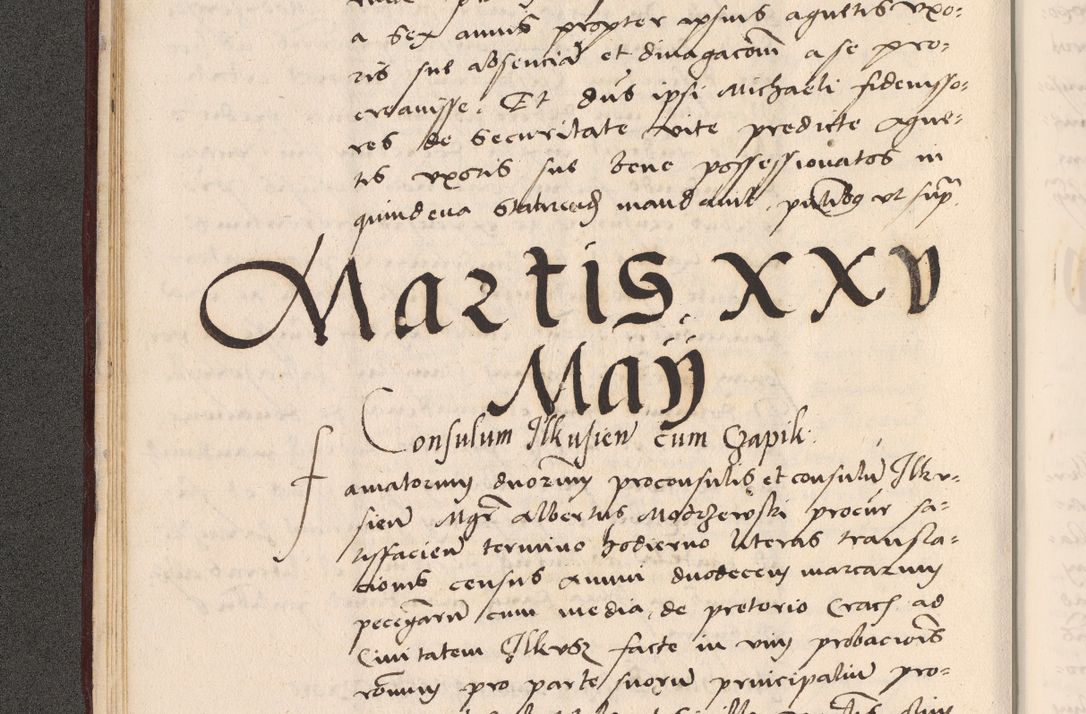 a sex annis propter ipsius agnetis vxo:
ris sub absenciā et divagacōm̄ a se pro:
creavisse. Et dn̄s ipsi Michaeli fideiusso:
res de securitate vite predicte Agne:
tis vxoris sue bene possessionatos in
quindena statuend mandavit, p̄ntibꝫ vt sup̄
Martis XXV
Maÿ
Consulum Ilkusien cum Czapik.
Famatorum dn̄orum proconsulis et consulū Ilku:
sien Mgr̄ Albertus Modrzewski procur sa:
tisfacien termino hodierno literas transla:
cionis census annui duodecem marcarum
peccārū cum media, de pretorio Crac ad
Civitatem Ilkusz facte in vim probacionis
pro parte suorū principaliū pro: